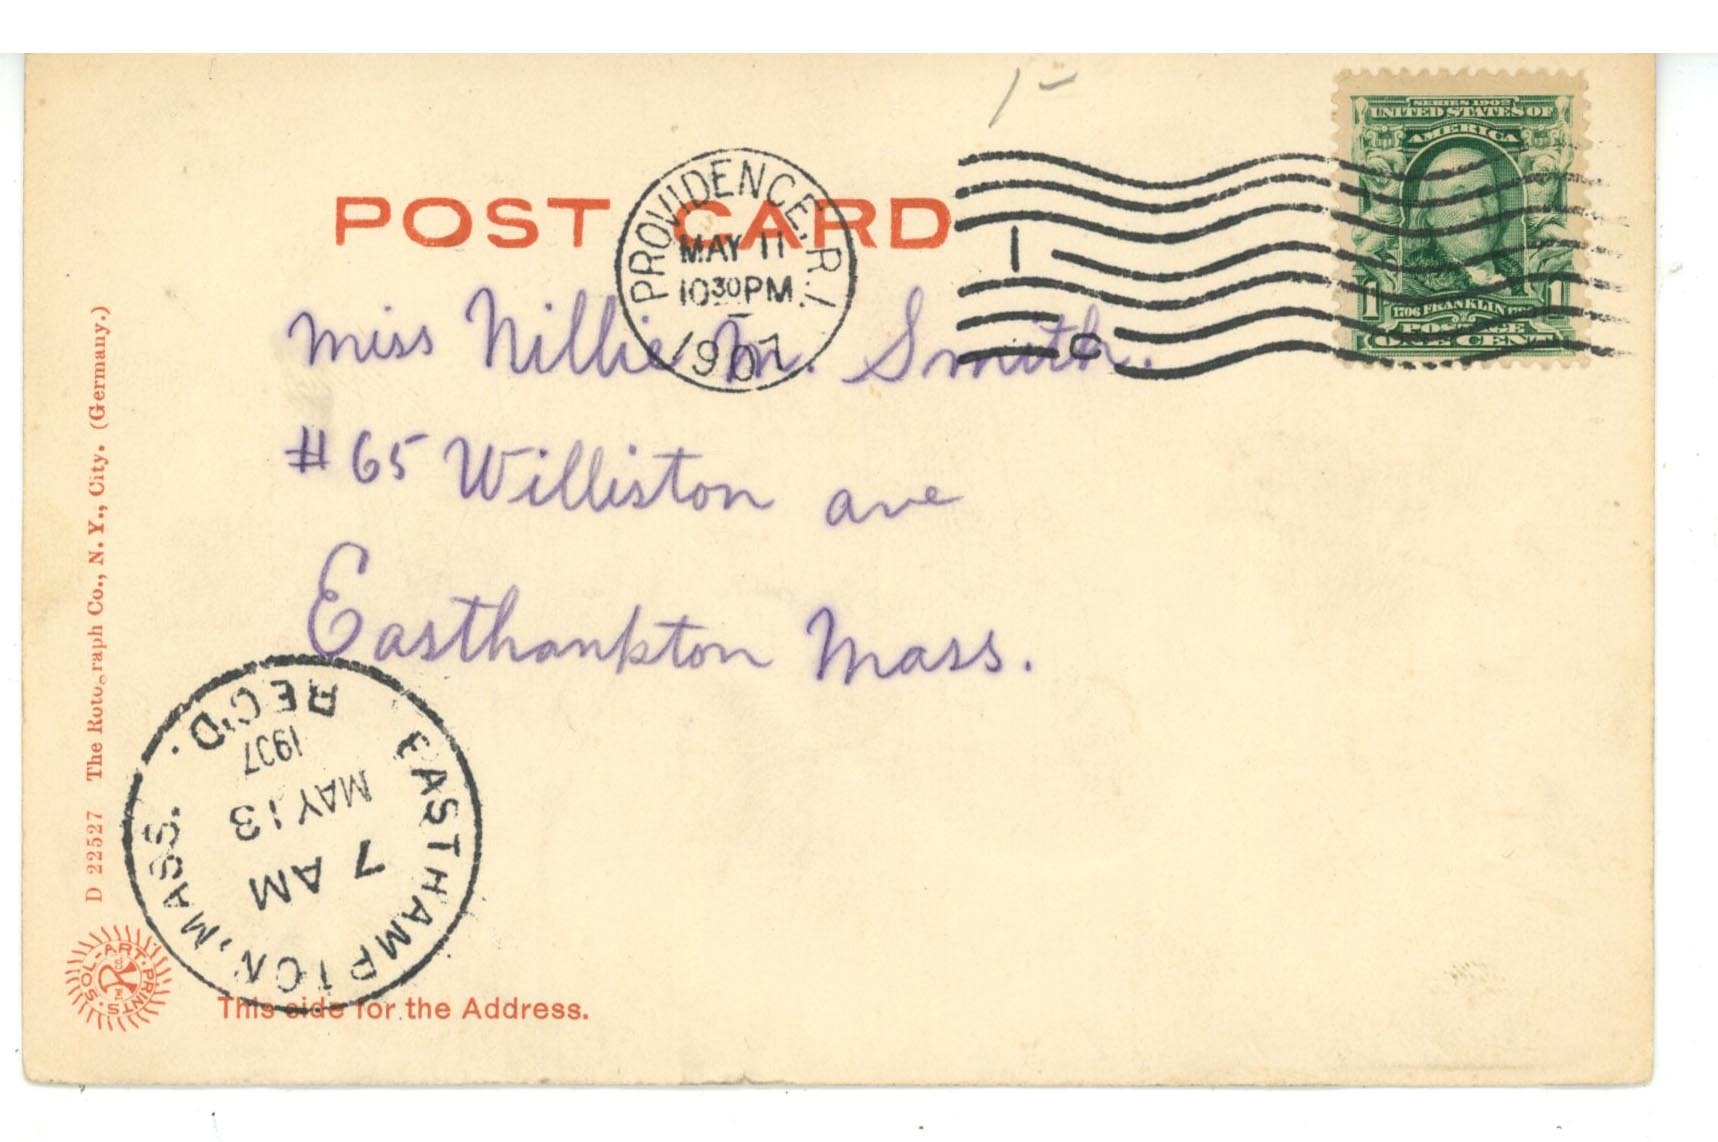 SERIES 1902
UNITED STATES OF
AMERICA
1 1706 FRANKLIN 1790 1
POSTAGE
ONE CENT
POST CARD
PROVIDENCE, R.I.
MAY 11
10 30 PM
1907
1 C
Miss Nillie M. Smith.
#65 Williston ave
Easthankton Mass.
D 22527 The Rotograph Co., N. Y., City. (Germany.)
EASTHAMPTON, MASS.
7 AM
MAY 13
1907
REC'D.
SOL-ART PRINTS
This side for the Address.